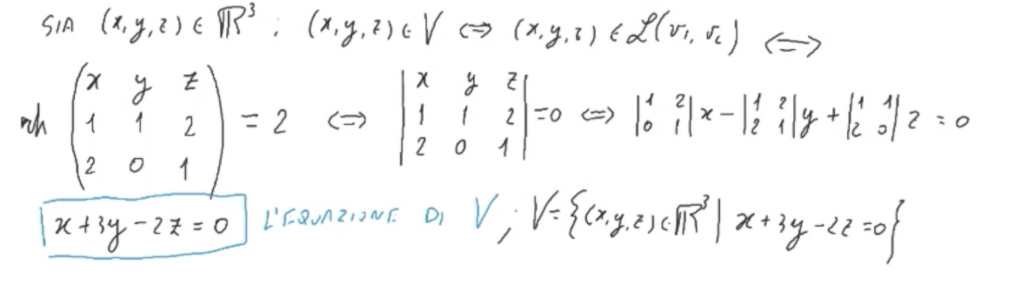 SIA (x,y,z) ∈ ℝ³ : (x,y,z) ∈ V ⟺ (x,y,z) ∈ ℒ(v₁, v₂) ⟺
rh (x y z; 1 1 2; 2 0 1) = 2 ⟺ |x y z; 1 1 2; 2 0 1| = 0 ⟺ |1 2; 0 1| x − |1 2; 2 1| y + |1 1; 2 0| z = 0
x+3y−2z=0 L'EQUAZIONE DI V ; V={(x,y,z)∈ℝ³ | x+3y−2z=0}